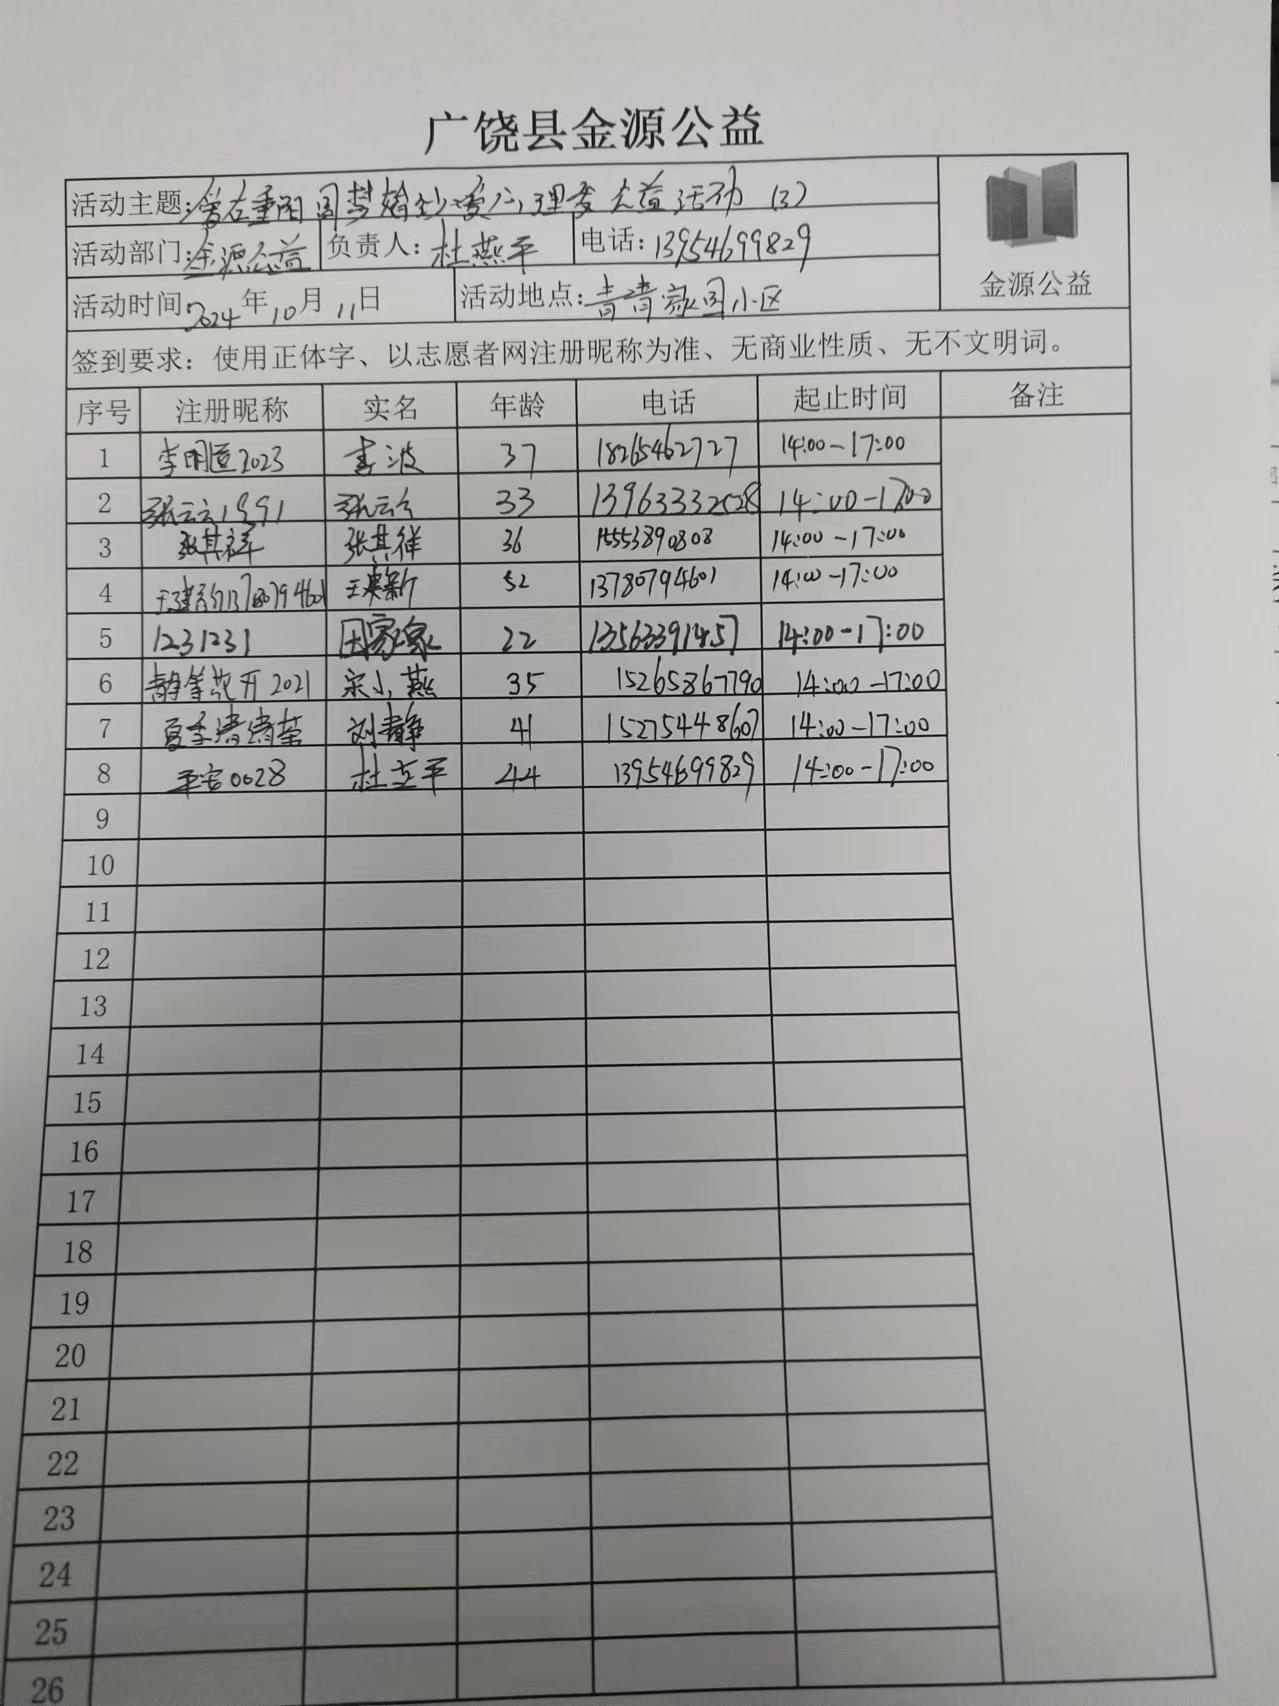 广饶县金源公益
活动主题: 重阳 公益活动 (3)
活动部门: 金源公益 负责人: 杜燕平 电话: 13954699829
活动时间: 2024年10月11日 活动地点: 青青家园小区
金源公益
签到要求：使用正体字、以志愿者网注册昵称为准、无商业性质、无不文明词。
序号 注册昵称 实名 年龄 电话 起止时间 备注
1 李明道2023 李波 37 18265462727 14:00-17:00
2 张云云1991 张云云 33 14:00-17:00
3 张其祥 张其祥 36 15553890808 14:00-17:00
4 52 13780794601 14:00-17:00
5 1231231 田家家 22 13563391457 14:00-17:00
6 静等花开2021 宋小燕 35 15265867790 14:00-17:00
7 刘静 41 15275448607 14:00-17:00
8 平安0028 杜燕平 44 13954699829 14:00-17:00
9
10
11
12
13
14
15
16
17
18
19
20
21
22
23
24
25
26